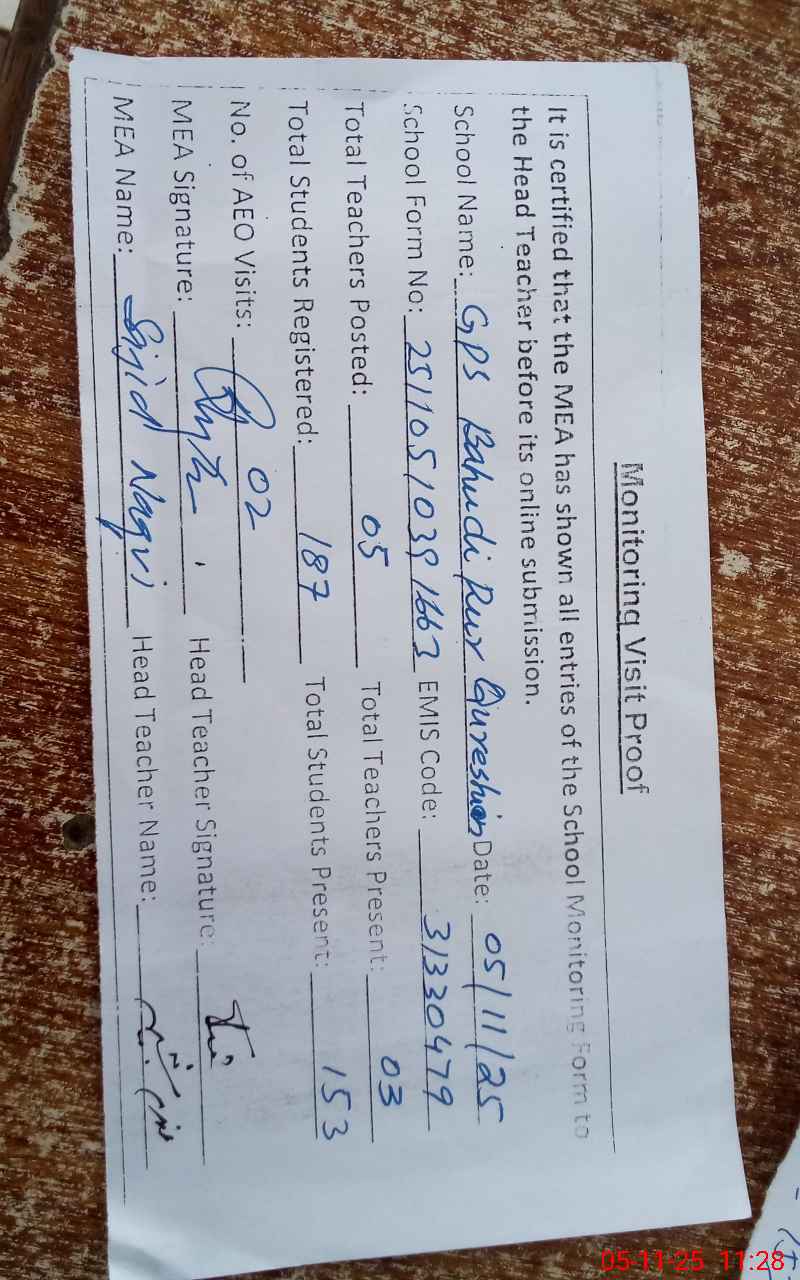 Monitoring Visit Proof
It is certified that the MEA has shown all entries of the School Monitoring Form to
the Head Teacher before its online submission.
School Name: GPS Bahudi Pur Qureshian Date: 05/11/25
School Form No: 251105/0391663 EMIS Code: 31330479
Total Teachers Posted: 05 Total Teachers Present: 03
Total Students Registered: 187 Total Students Present: 153
No. of AEO Visits: 02
MEA Signature: Head Teacher Signature:
MEA Name: Sajid Naqvi Head Teacher Name:
05-11-25 11:28